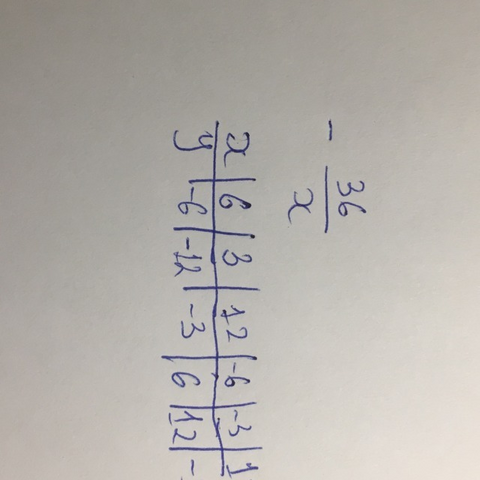 - 36/x
x | 6 | 3 | 12 | -6 | -3 | 1
y | -6 | -12 | -3 | 6 | 12 | -